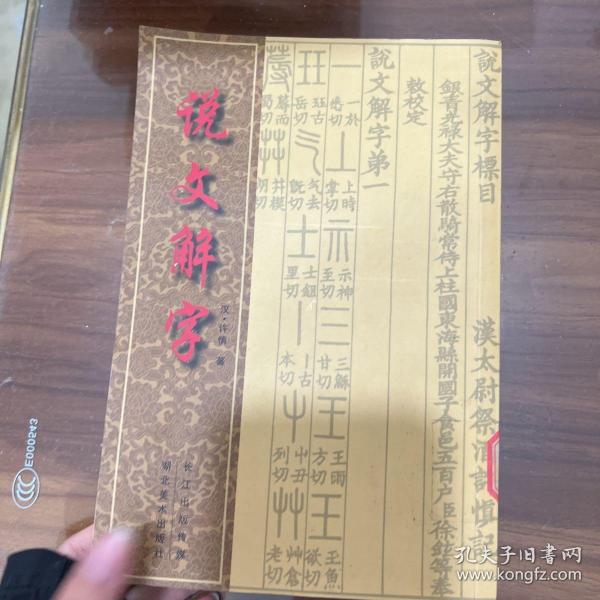 说文解字
汉·许慎 著
长江出版传媒
湖北美术出版社
說文解字標目
漢太尉祭酒許慎記
銀青光祿大夫守右散騎常侍上柱國東海縣開國子食邑五百户臣徐鉉等奉
敕校定
說文解字弟一
一 一於悉切
上 上時掌切
示 示神至切
三 三穌甘切
王 王雨方切
玉 玉魚欲切
玨 玨古岳切
气 气去旣切
士 士鉏里切
丨 丨古本切
屮 屮丑列切
艸 艸倉老切
蓐 蓐而蜀切
茻 茻模朗切
E000543
孔夫子旧书网
www.kongfz.com